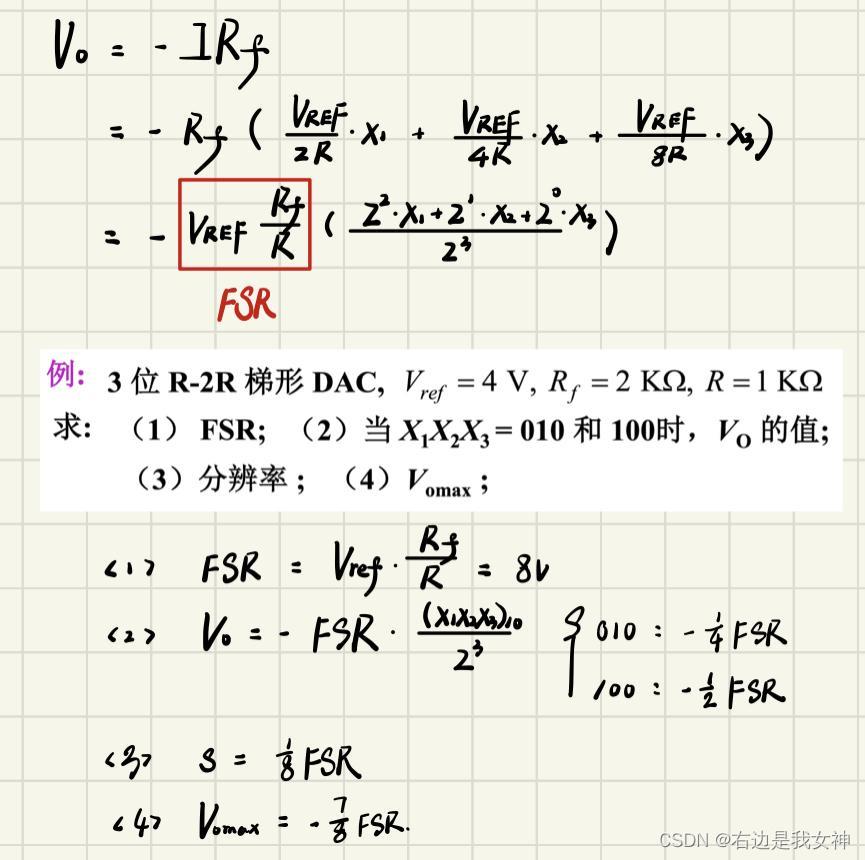 V₀ = - IRf
= - Rf ( VREF/2R · X₁ + VREF/4R · X₂ + VREF/8R · X₃ )
= - VREF Rf/R ( 2²·X₁+2¹·X₂+2⁰·X₃ / 2³ )
FSR
例: 3 位 R-2R 梯形 DAC, Vref = 4 V, Rf = 2 KΩ, R = 1 KΩ
求: （1） FSR; （2）当 X₁X₂X₃ = 010 和 100时，VO 的值;
（3）分辨率； （4）Vomax；
<1> FSR = Vref · Rf/R = 8V
<2> V₀ = - FSR · (X₁X₂X₃)₁₀/2³ { 010 : - 1/4 FSR
100 : - 1/2 FSR
<3> S = 1/8 FSR
<4> Vomax = - 7/8 FSR.
CSDN @右边是我女神